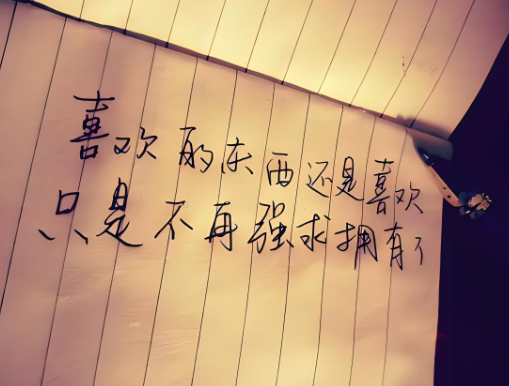 喜欢的东西还是喜欢
只是不再强求拥有了